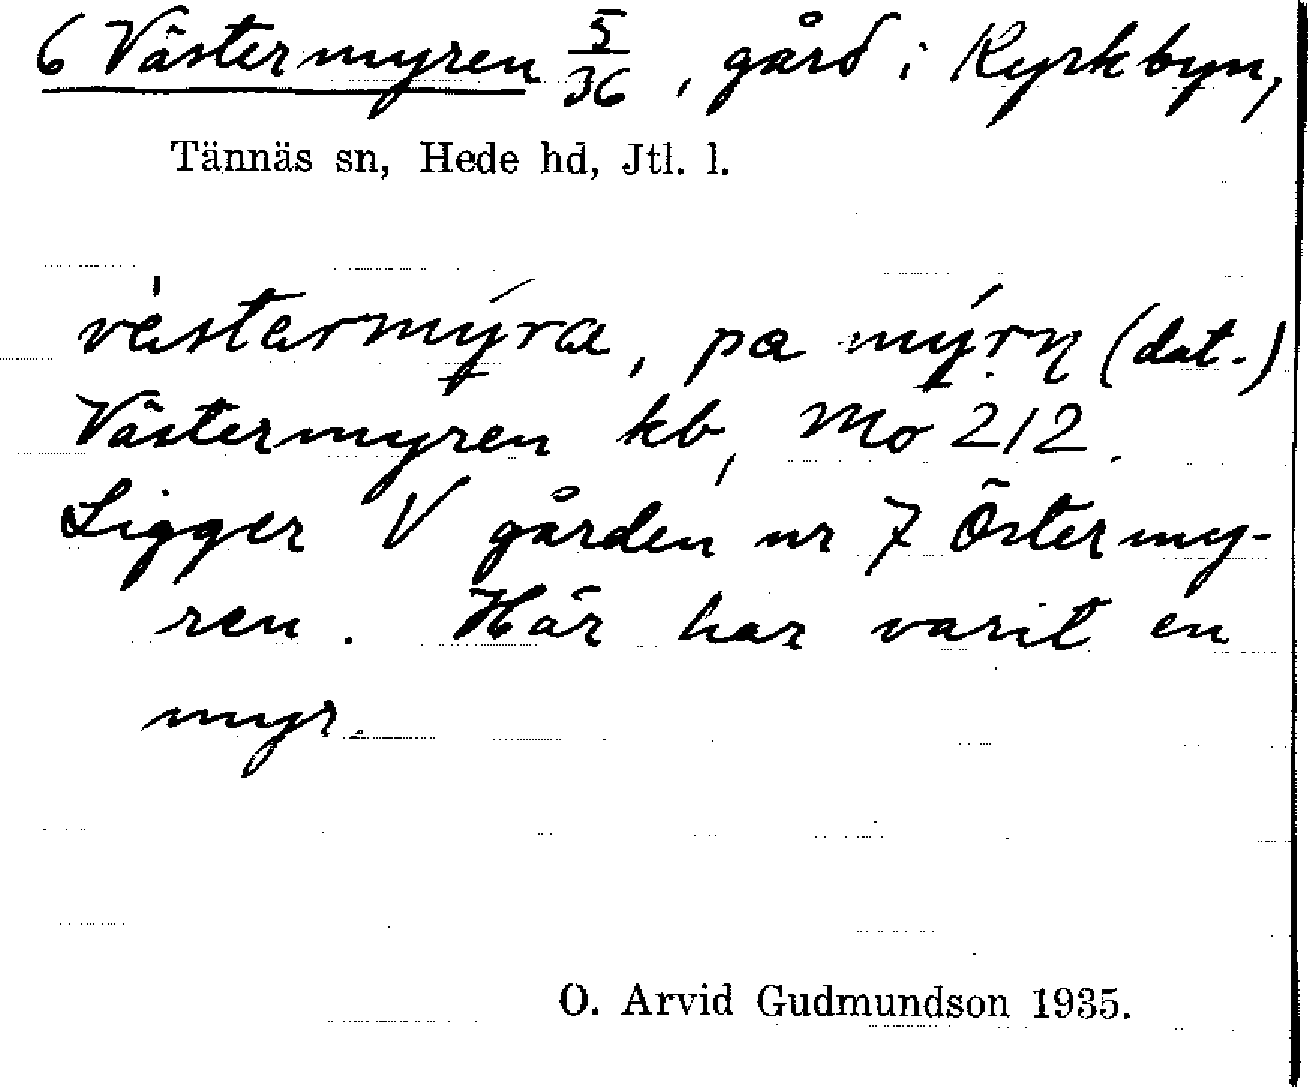 6 Västermyren 5/36, gård i Kyrkbyn,
Tännäs sn, Hede hd, Jtl. l.
västərmy̆ra, pa my̆rn (dat.)
Västermyren kb, Mo 212.
Ligger V gården nr 7 Östermy-
ren. Här har varit en
myr.
O. Arvid Gudmundson 1935.